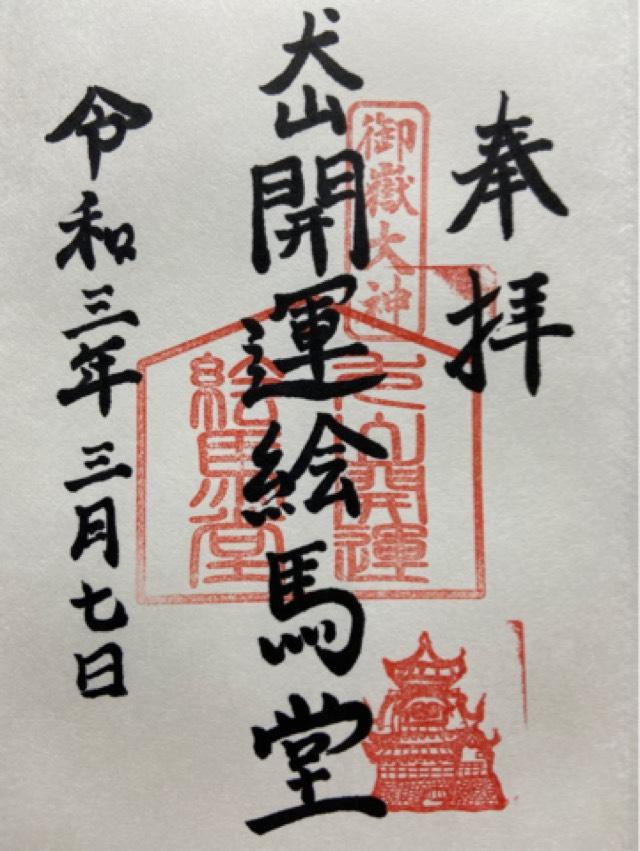 奉拝
御嶽大神
犬山開運絵馬堂
犬山開運
絵馬堂
令和三年三月七日